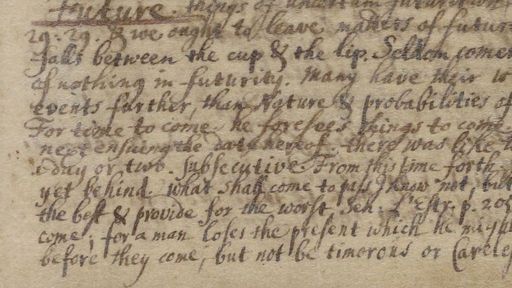 future. things of uncertain
29. 29. & we ought to leave matters of futur
falls between the cup & the lip. Seldom comes
of nothing in futurity. many have their
events further, than Nature & probabilities of
For time to come. he foresees things to come
next ensuing the date hereof. there was like t
a day or two. subsecutive. From this time forth.
yet behind. what shall come to pass I know not, but
the best & provide for the worst. Sen: L'Estr. p. 205
come; for a man loses the present which he might
before they come, but not be timorous or Careles